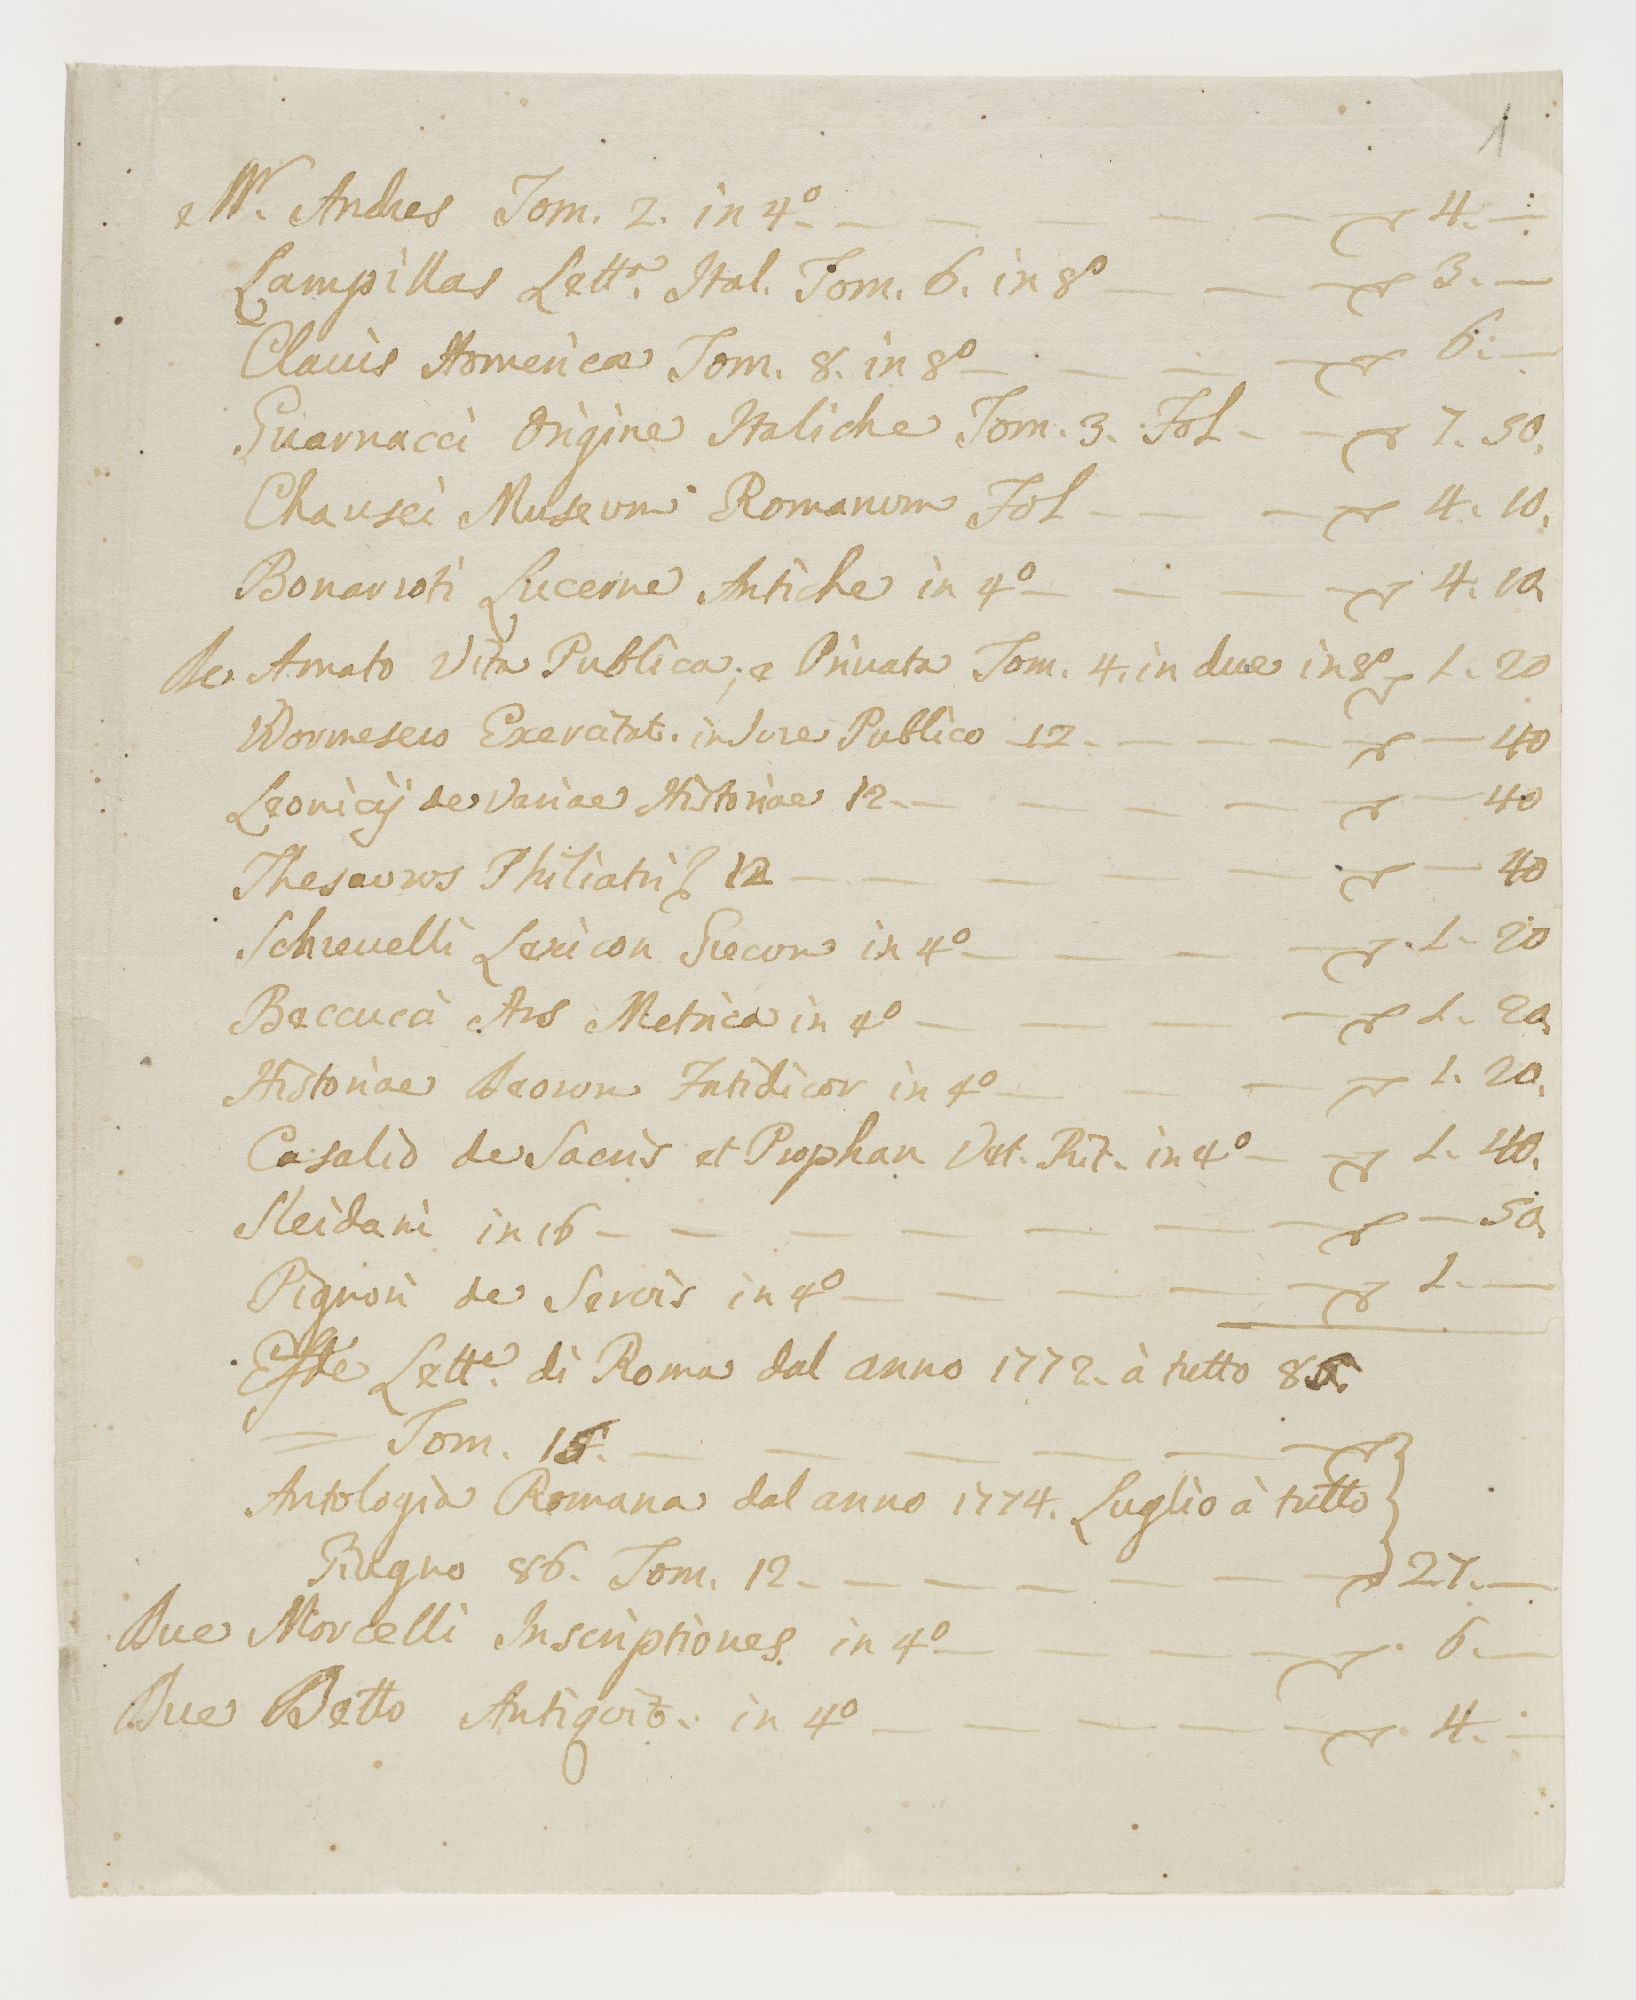 1
Mr. Andres Tom. 2. in 4º 4. —
Lampillas Letta. Ital. Tom. 6. in 8º 3. —
Clavis Homerica Tom. 8. in 8º 6. —
Guarnacci Origine Italiche Tom. 3. Fol 7. 50.
Chausei Museum Romanum Fol 4. 10.
Bonarroti Lucerne Antiche in 4º 4. 10.
De Amato Vita Publica, e Privata Tom. 4. in due in 8º 1. 20
Exercitat. in Jure Publico 12. — 40
Leonicij de Variae Historiae 12. — 40
Thesaurus Philiatri 12 — 40
Schrevelli Lexicon Grecum in 4º 1. 20
Beccucci Ars Metrica in 4º 1. 20.
Historiae Deorum Fatidicor in 4º 1. 20.
Casalio de Sacris et Prophan Vet. Rit. in 4º 1. 40.
Sleidani in 16 — 50.
Pignori de Servis in 4º 1. —
Effde Lette. di Roma dal anno 1772. à tutto 85.
= Tom. 15.
Antologia Romana dal anno 1774. Luglio à tutto
Giugno 86. Tom. 12. 27. —
Due Morcelli Inscriptiones in 4º 6. —
Due Betto Antiquit. in 4º 4. —